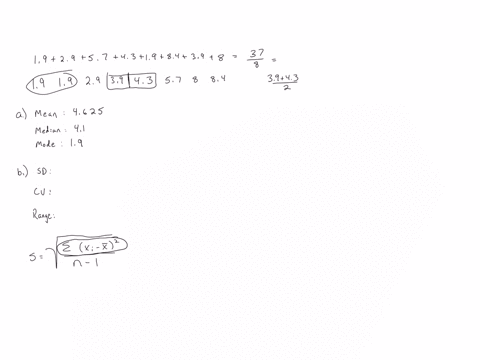 1.9 + 2.9 + 5.7 + 4.3 + 1.9 + 8.4 + 3.9 + 8 = 37/8 =
1.9 1.9 2.9 3.9 4.3 5.7 8 8.4 3.9+4.3/2
a) Mean : 4.625
Median : 4.1
Mode : 1.9
b.) SD :
CV :
Range:
S = √(Σ (xi - x̄)² / n - 1)